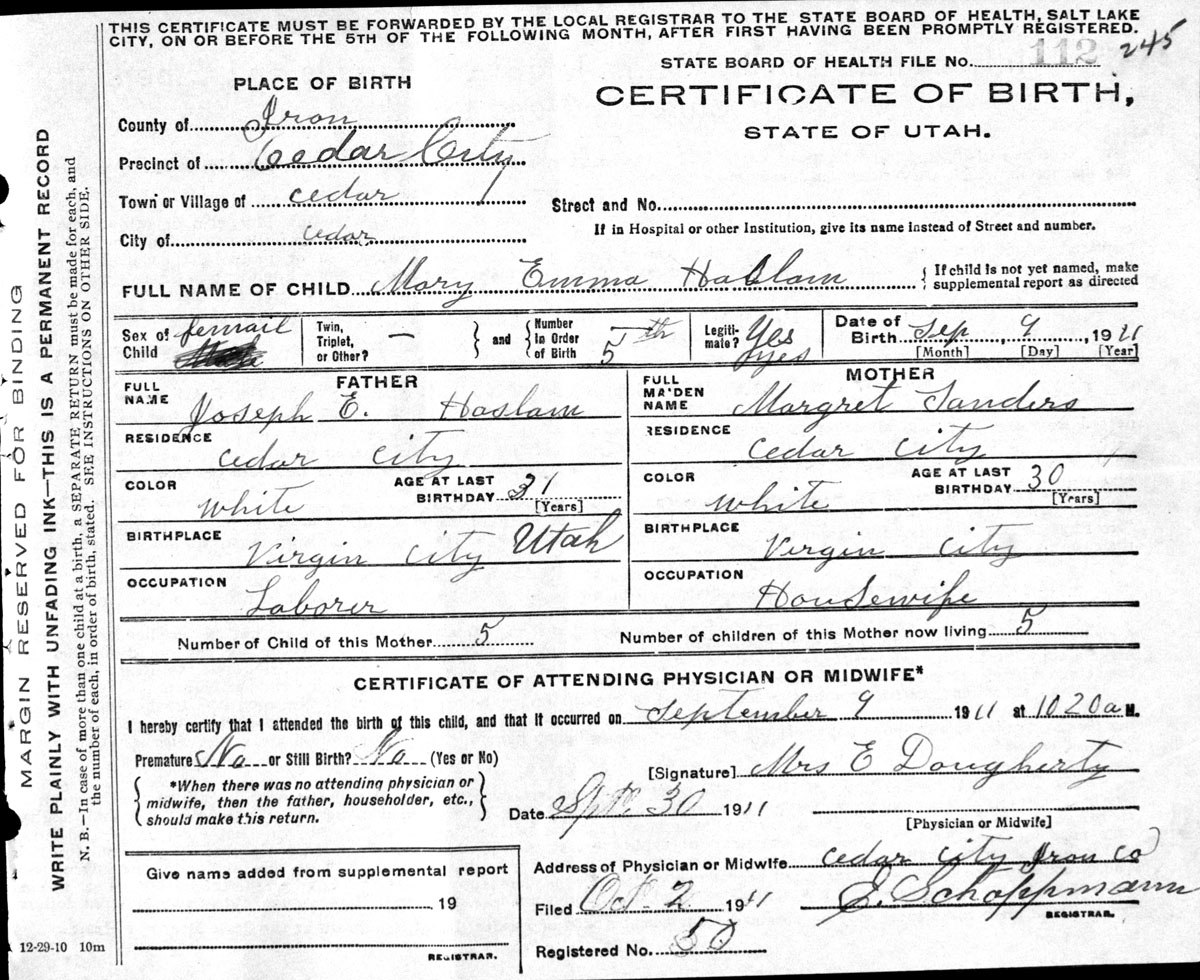 THIS CERTIFICATE MUST BE FORWARDED BY THE LOCAL REGISTRAR TO THE STATE BOARD OF HEALTH, SALT LAKE
CITY, ON OR BEFORE THE 5TH OF THE FOLLOWING MONTH, AFTER FIRST HAVING BEEN PROMPTLY REGISTERED.
STATE BOARD OF HEALTH FILE No. 112 245
PLACE OF BIRTH
CERTIFICATE OF BIRTH,
STATE OF UTAH.
County of Iron
Precinct of Cedar City
Town or Village of cedar
Street and No.
City of cedar
If in Hospital or other Institution, give its name instead of Street and number.
FULL NAME OF CHILD Mary Emma Haslam { If child is not yet named, make supplemental report as directed
Sex of Child femail
Twin, Triplet, or Other? — } and { Number in Order of Birth 5th
Legitimate? Yes yes
Date of Birth Sep 9, 1911
[Month] [Day] [Year]
FATHER
FULL NAME Joseph E. Haslam
RESIDENCE cedar city
COLOR white
AGE AT LAST BIRTHDAY 31 [Years]
BIRTHPLACE Virgin city Utah
OCCUPATION Laborer
MOTHER
FULL MAIDEN NAME Margret Sanders
RESIDENCE cedar city
COLOR white
AGE AT LAST BIRTHDAY 30 [Years]
BIRTHPLACE Virgin city
OCCUPATION Housewife
Number of Child of this Mother 5
Number of children of this Mother now living 5
CERTIFICATE OF ATTENDING PHYSICIAN OR MIDWIFE*
I hereby certify that I attended the birth of this child, and that it occurred on september 9 1911 at 10 20 a M.
Premature No or Still Birth? No (Yes or No)
[Signature] Mrs E Dougherty
{ *When there was no attending physician or
midwife, then the father, householder, etc.,
should make this return. }
Date Sept 30 1911
[Physician or Midwife]
Address of Physician or Midwife cedar city Iron co
Give name added from supplemental report
19
REGISTRAR.
Filed Oct. 2 1911 E. Schoppmann
REGISTRAR.
Registered No. 50
12-29-10 10m
MARGIN RESERVED FOR BINDING
WRITE PLAINLY WITH UNFADING INK—THIS IS A PERMANENT RECORD
N. B.—In case of more than one child at a birth, a SEPARATE RETURN must be made for each, and
the number of each, in order of birth, stated. SEE INSTRUCTIONS ON OTHER SIDE.